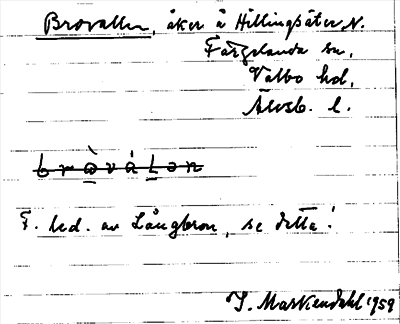 Brovallen, åker å Hillingsäter N.
Färgelanda sn,
Valbo hd,
Älvsb. l.
bròvàLən
F. led. av Långbron, se detta!
I. Markendahl 1959